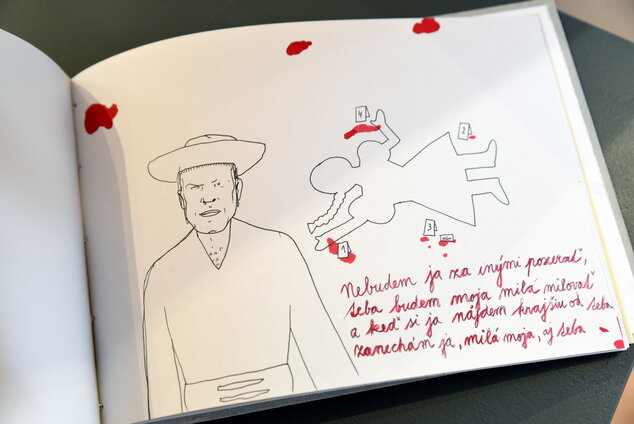 4
2
3
1
Nebudem ja za inými pozerať,
teba budem moja milá milovať
a keď si ja nájdem krajšiu od teba
zanechám ja, milá moja, aj teba